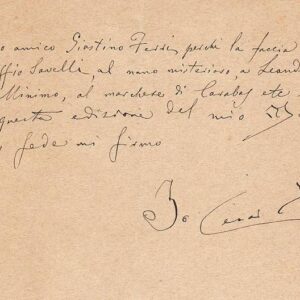 o amico Giustino Ferri, perchè la faccia
ffio Savella, al nano misterioso, a Leand
Minimo, al marchese di Carabas etc
questa edizione del mio
fede mi firmo